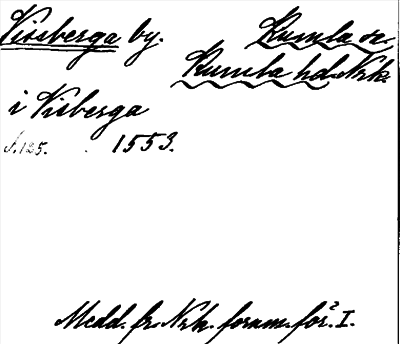 Vissberga by. Kumla sn.
Kumla hd. Nrk.
i Visberga
s. 125. 1553.
Medd. fr. Nrk. fornm. för. I.